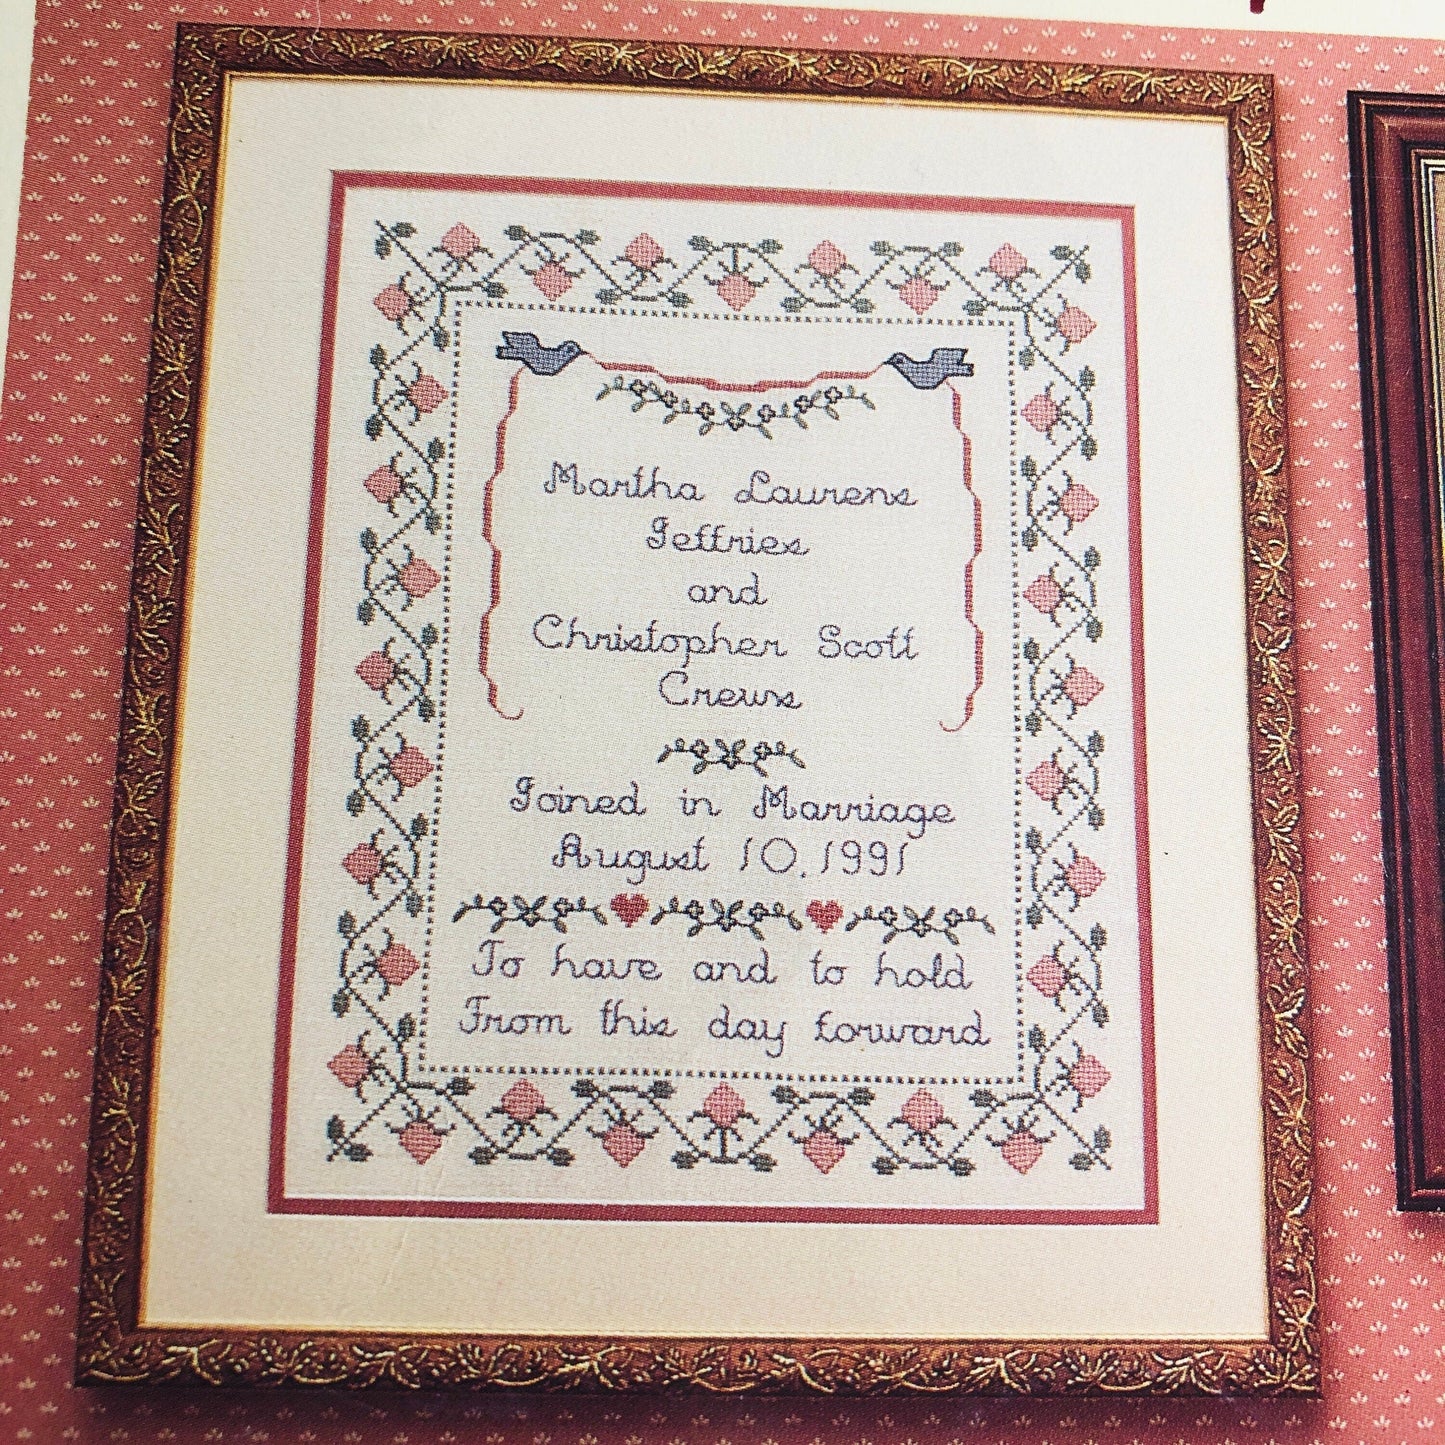 Martha Laurens
Jeffries
and
Christopher Scott
Crews
Joined in Marriage
August 10, 1991
To have and to hold
From this day forward